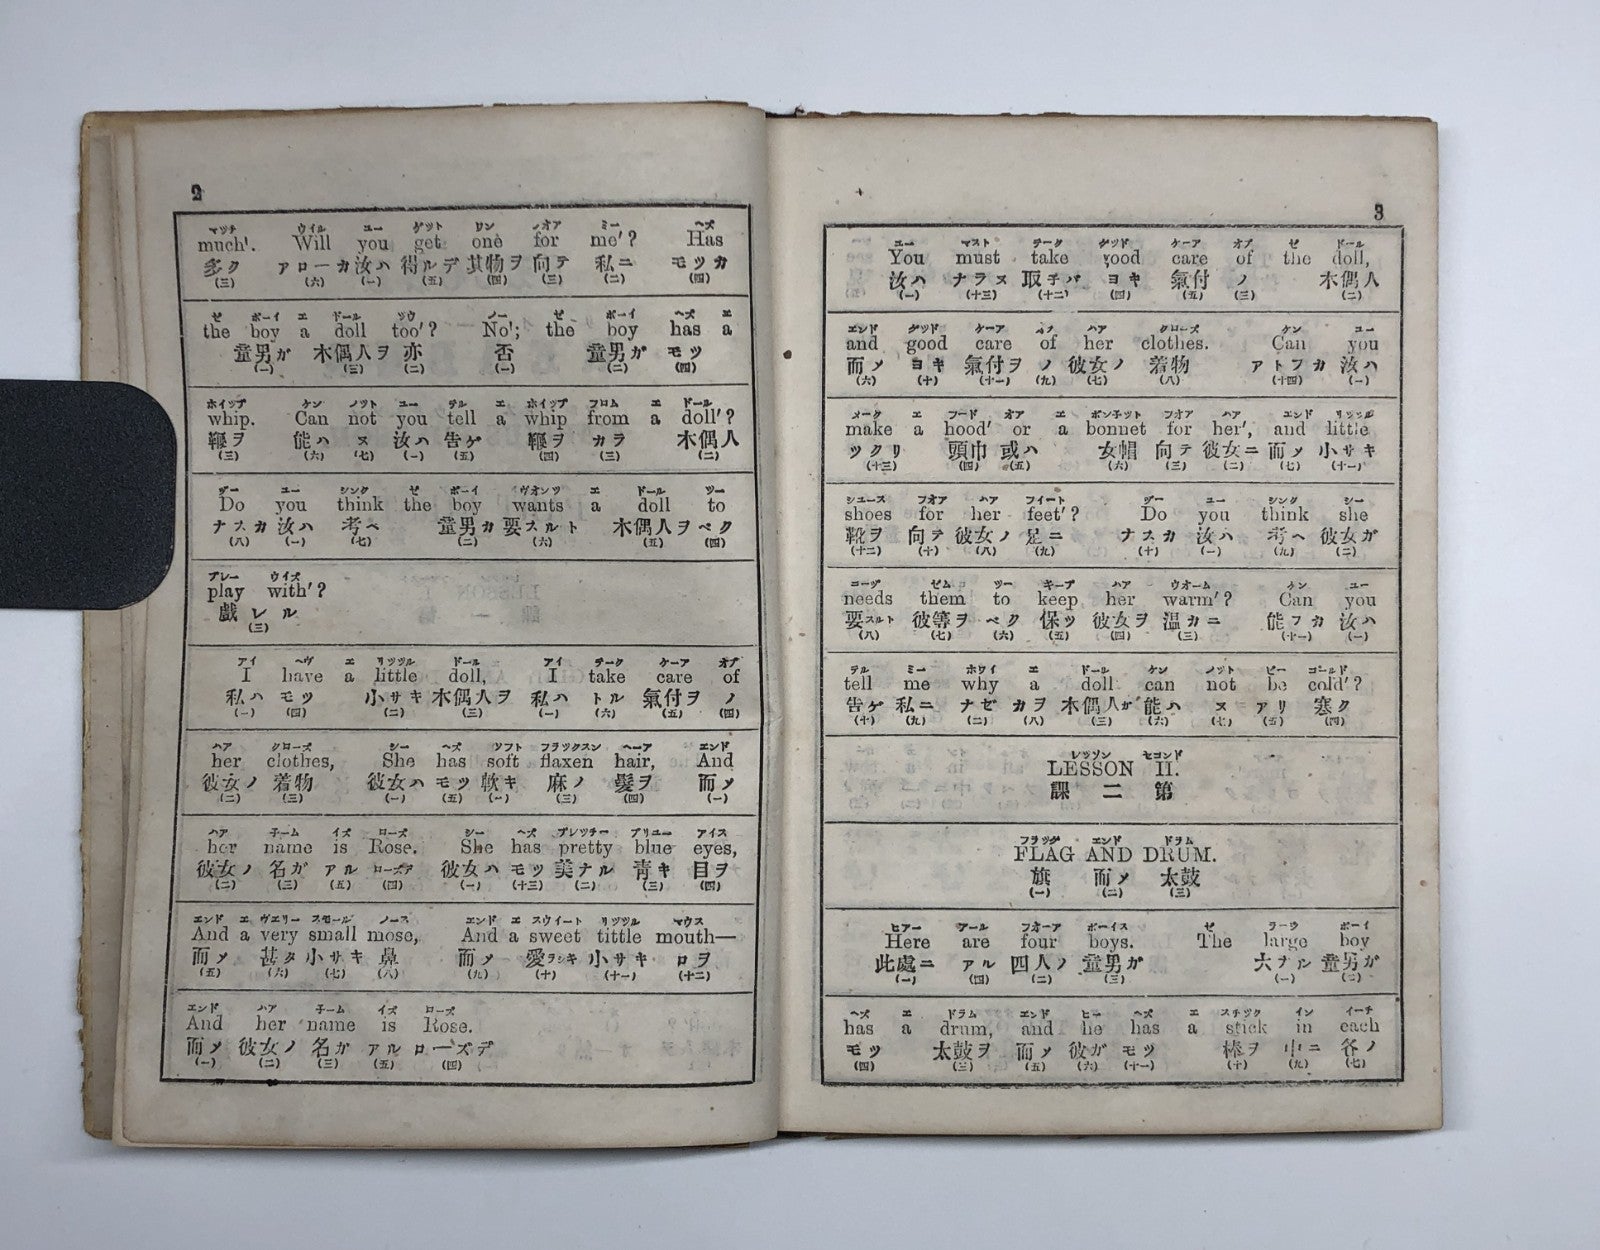 2
マッチ ウイル ユー ゲット ワン フオア ミー ヘズ
much'. Will you get one for me'? Has
多ク アローカ 汝ハ 得ルデ 其物ヲ 向テ 私ニ モツカ
(三) (六) (一) (五) (四) (三) (二) (四)
ゼ ボーイ エ ドール ツウ ノー ゼ ボーイ ヘズ エ
the boy a doll too'? No'; the boy has a
童男ガ 木偶人ヲ 亦 否 童男ガ モツ
(一) (三) (二) (一) (二) (四)
ホイップ ケン ノット ユー テル エ ホイップ フロム エ ドール
whip. Can not you tell a whip from a doll'?
鞭ヲ 能ハ ヌ 汝ハ 告ゲ 鞭ヲ カラ 木偶人
(三) (六) (七) (一) (五) (四) (三) (二)
ヅー ユー シンク ゼ ボーイ ヴオンツ エ ドール ツー
Do you think the boy wants a doll to
ナスカ 汝ハ 考ヘ 童男ガ 要スルト 木偶人ヲ ベク
(八) (一) (七) (二) (六) (五) (四)
プレー ウイズ
play with'?
戯レル
(三)
アイ ヘヴ エ リッツル ドール アイ テーク ケーア オブ
I have a little doll, I take care of
私ハ モツ 小サキ 木偶人ヲ 私ハ トル 氣付ヲ ノ
(一) (四) (二) (三) (一) (六) (五) (四)
ハア クローズ シー ヘズ ソフト フラックスン ヘーア エンド
her clothes, She has soft flaxen hair, And
彼女ノ 着物 彼女ハ モツ 軟キ 麻ノ 髮ヲ 而メ
(二) (三) (一) (五) (一) (三) (四) (一)
ハア 子ーム イズ ローズ シー ヘズ プレッチー ブリユー アイス
her name is Rose. She has pretty blue eyes,
彼女ノ 名ガ アル ローズデ 彼女ハ モツ 美ナル 靑キ 目ヲ
(二) (三) (五) (四) (一) (十三) (二) (三) (四)
エンド エ ヴエリー スモール ノース エンド エ スウイート リッツル マウス
And a very small mose, And a sweet tittle mouth—
而メ 甚タ 小サキ 鼻 而メ 愛ラシキ 小サキ 口ヲ
(五) (六) (七) (八) (九) (十) (十一) (十二)
エンド ハア 子ーム イズ ローズ
And her name is Rose.
而メ 彼女ノ 名ガ アル ローズデ
(一) (二) (三) (五) (四)
3
ユー マスト テーク グッド ケーア オブ ゼ ドール
You must take good care of the doll,
汝ハ ナラヌ 取子バ ヨキ 氣付 ノ 木偶人
(一) (十三) (十二) (四) (五) (三) (二)
エンド グッド ケーア オブ ハア クローズ ケン ユー
and good care of her clothes. Can you
而メ ヨキ 氣付ヲ ノ 彼女ノ 着物 アトフカ 汝ハ
(六) (十) (十一) (九) (七) (八) (十四) (一)
メーク エ フード オア エ ボン子ット フオア ハア エンド リッツル
make a hood' or a bonnet for her', and little
ツクリ 頭巾 或ハ 女帽 向テ 彼女ニ 而メ 小サキ
(十三) (四) (五) (六) (三) (二) (七) (十一)
シユース フオア ハア フイート ヅー ユー シンク シー
shoes for her feet'? Do you think she
靴ヲ 向テ 彼女ノ 足ニ ナスカ 汝ハ 考ヘ 彼女ガ
(十二) (十) (八) (九) (十) (一) (九) (二)
ニーヅ ゼム ツー キープ ハア ウオーム ケン ユー
needs them to keep her warm'? Can you
要スルト 彼等ヲ ベク 保ツ 彼女ヲ 温カニ 能フカ 汝ハ
(八) (七) (六) (五) (四) (三) (十一) (一)
テル ミー ホワイ エ ドール ケン ノット ビー コールド
tell me why a doll can not be cold'?
告ゲ 私ニ ナゼカヲ 木偶人ガ 能ハ ヌ アリ 寒ク
(十) (九) (二) (八) (三) (六) (七) (五) (四)
レッソン セコンド
LESSON II.
課 二 第
フラッグ エンド ドラム
FLAG AND DRUM.
旗 而メ 太鼓
(一) (二) (三)
ヒアー アール フオーア ボーイス ゼ ラーヂ ボーイ
Here are four boys. The large boy
此處ニ アル 四人ノ 童男ガ 大ナル 童男ガ
(一) (四) (二) (三) (一) (二)
ヘズ エ ドラム エンド ヒー ヘズ エ スチック イン イーチ
has a drum, and he has a stick in each
モツ 太鼓ヲ 而メ 彼ガ モツ 棒ヲ 中ニ 各ノ
(四) (三) (五) (六) (十一) (十) (九) (七)